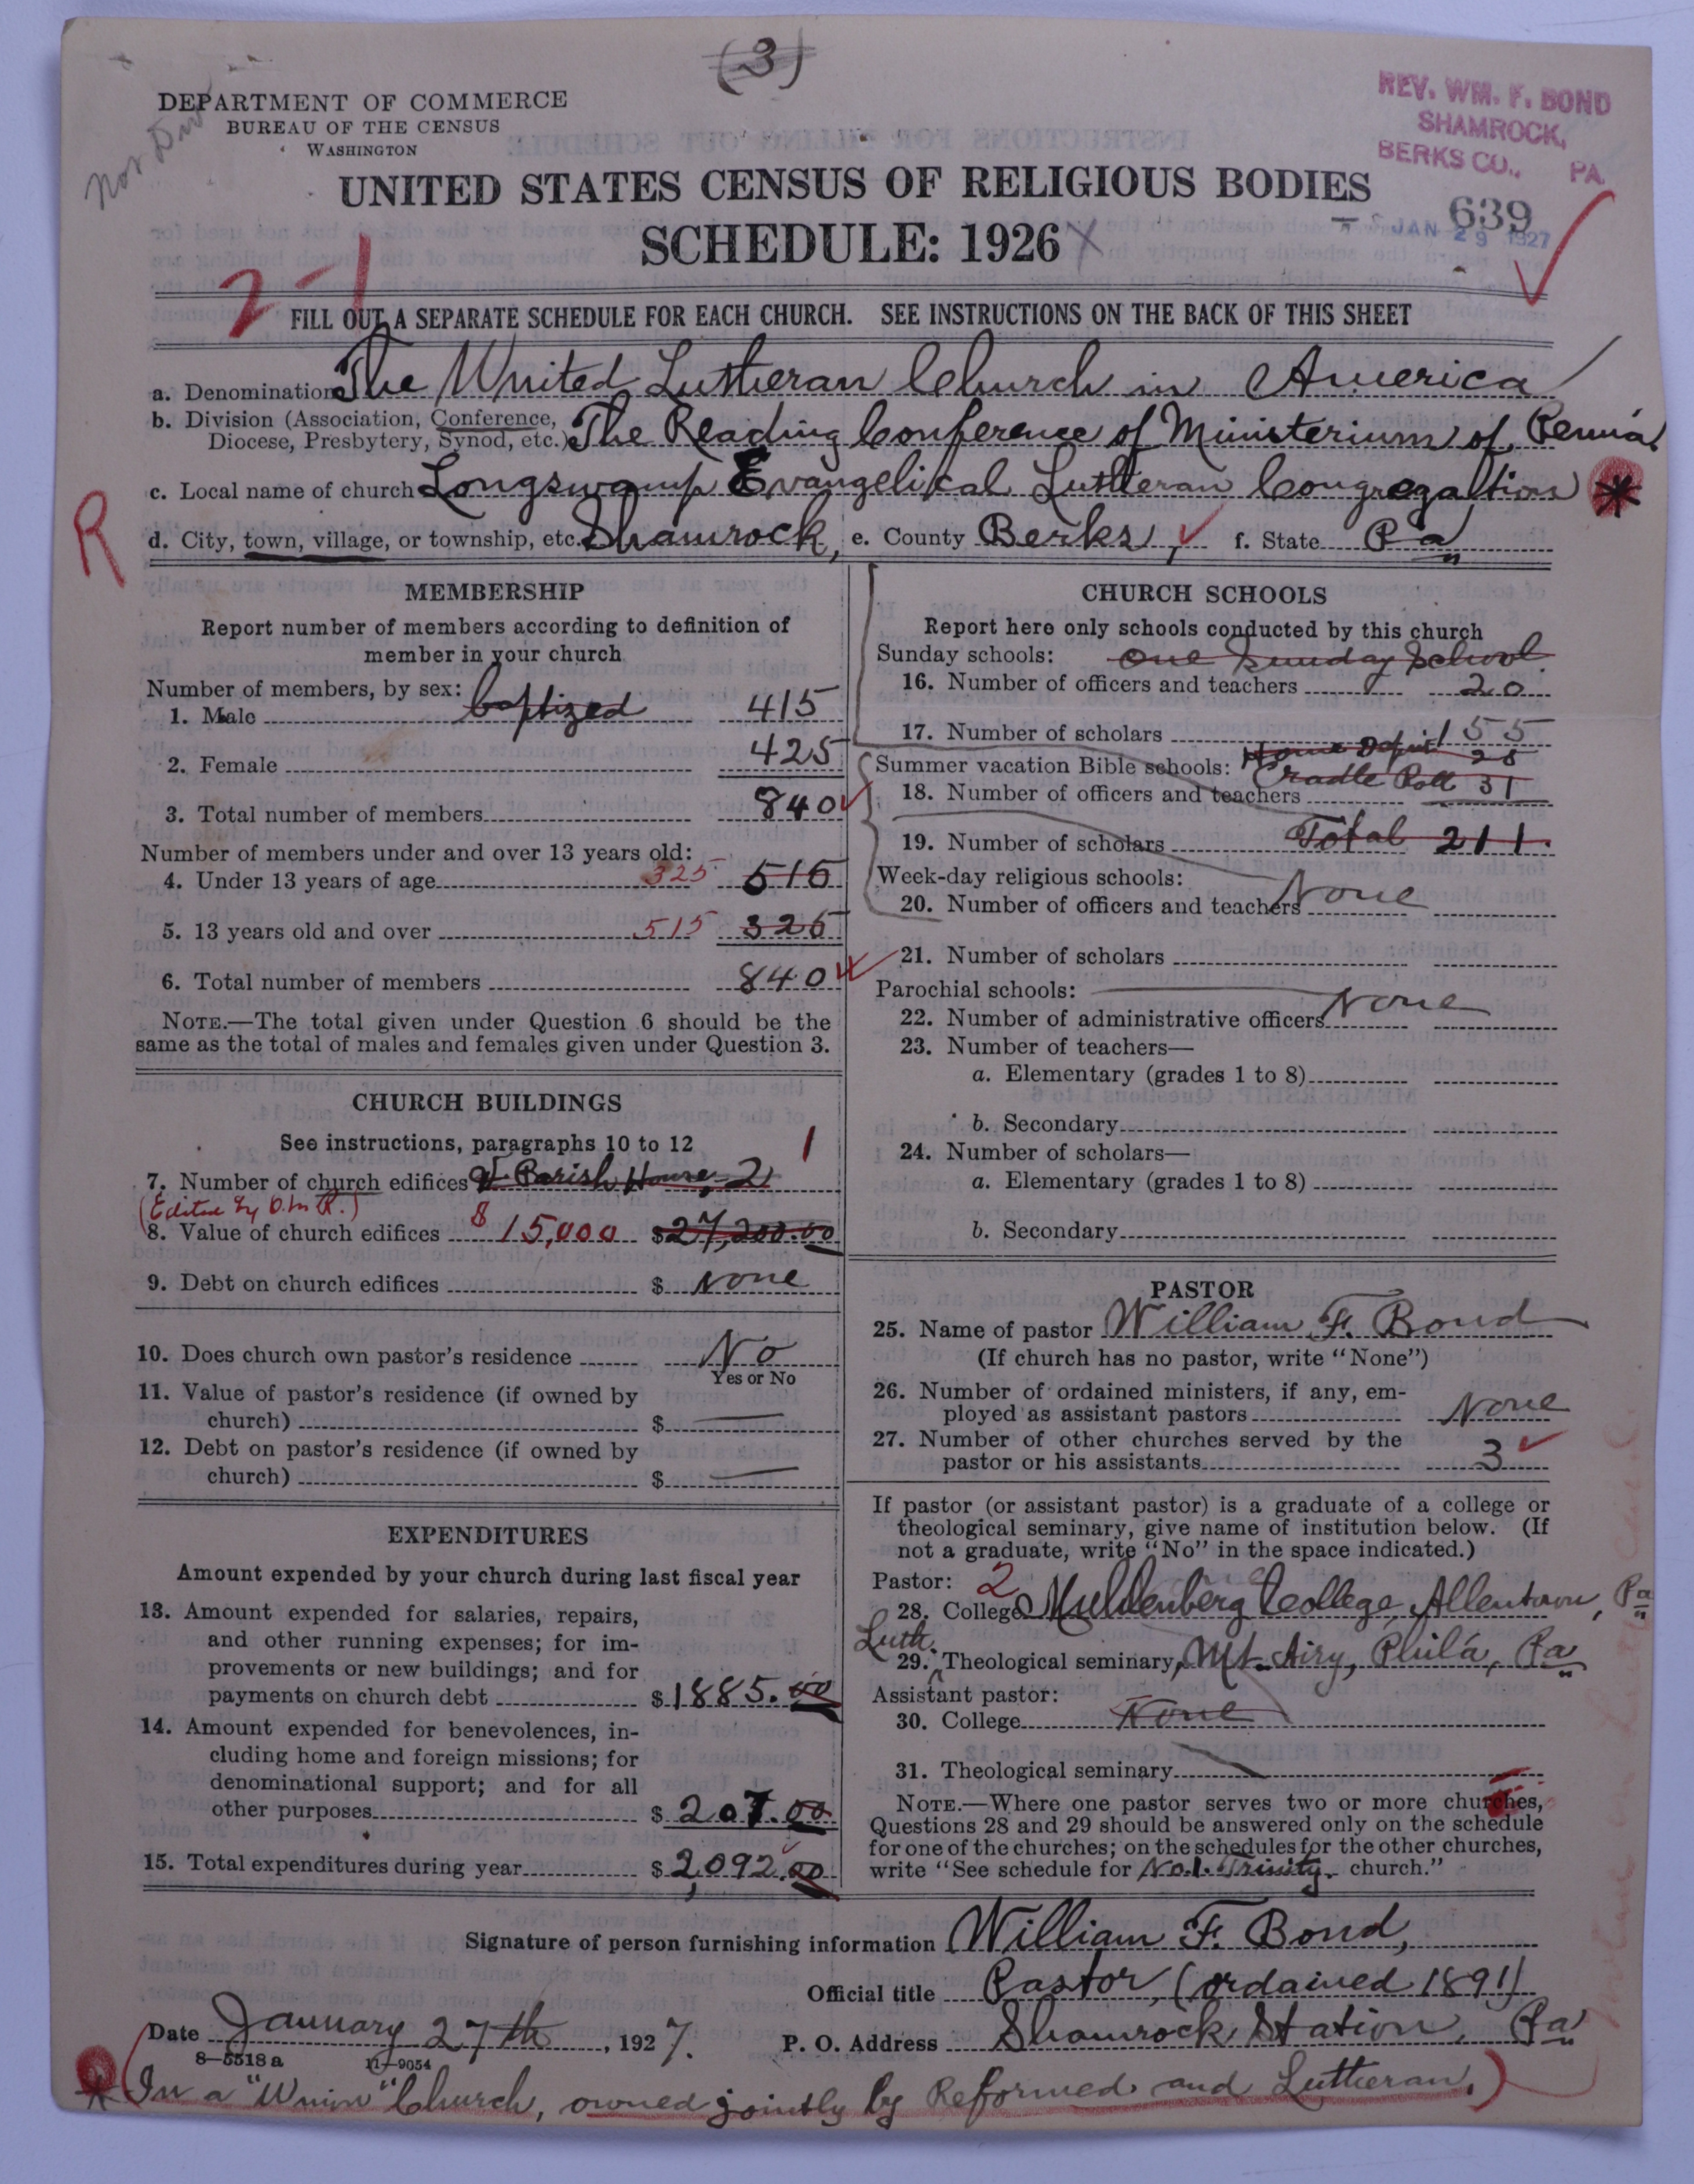 (3)
DEPARTMENT OF COMMERCE
BUREAU OF THE CENSUS
WASHINGTON
REV. WM. F. BOND
SHAMROCK,
BERKS CO., PA.
UNITED STATES CENSUS OF RELIGIOUS BODIES
SCHEDULE: 1926
639
JAN 29 1927
2-1
FILL OUT A SEPARATE SCHEDULE FOR EACH CHURCH. SEE INSTRUCTIONS ON THE BACK OF THIS SHEET
a. Denomination The United Lutheran Church in America
b. Division (Association, Conference,
Diocese, Presbytery, Synod, etc.) The Reading Conference of Ministerium of Penn'a.
c. Local name of church Longswamp Evangelikal Lutheran Congregation *
R
d. City, town, village, or township, etc. Shamrock, e. County Berks, f. State Pa
MEMBERSHIP
Report number of members according to definition of
member in your church
Number of members, by sex:
1. Male baptized 415
2. Female 425
3. Total number of members 840
Number of members under and over 13 years old:
4. Under 13 years of age 325 515
5. 13 years old and over 515 325
6. Total number of members 840
NOTE.—The total given under Question 6 should be the
same as the total of males and females given under Question 3.
CHURCH BUILDINGS
See instructions, paragraphs 10 to 12
1
7. Number of church edifices & Parish House, 2
(Edited by D.M.R.)
8. Value of church edifices $15,000 $27,200.00
9. Debt on church edifices $ None
10. Does church own pastor's residence No
Yes or No
11. Value of pastor's residence (if owned by
church) $
12. Debt on pastor's residence (if owned by
church) $
EXPENDITURES
Amount expended by your church during last fiscal year
13. Amount expended for salaries, repairs,
and other running expenses; for im-
provements or new buildings; and for
payments on church debt $1885.00
14. Amount expended for benevolences, in-
cluding home and foreign missions; for
denominational support; and for all
other purposes $207.00
15. Total expenditures during year $2,092.00
CHURCH SCHOOLS
Report here only schools conducted by this church
Sunday schools: One Sunday School
16. Number of officers and teachers 20
17. Number of scholars 155
Home Dep't 25
Summer vacation Bible schools: Cradle Roll 31
18. Number of officers and teachers
19. Number of scholars Total 211
Week-day religious schools:
20. Number of officers and teachers None
21. Number of scholars
Parochial schools:
22. Number of administrative officers None
23. Number of teachers—
a. Elementary (grades 1 to 8)
b. Secondary
24. Number of scholars—
a. Elementary (grades 1 to 8)
b. Secondary
PASTOR
25. Name of pastor William F. Bond
(If church has no pastor, write "None")
26. Number of ordained ministers, if any, em-
ployed as assistant pastors None
27. Number of other churches served by the
pastor or his assistants 3
If pastor (or assistant pastor) is a graduate of a college or
theological seminary, give name of institution below. (If
not a graduate, write "No" in the space indicated.)
Pastor: 2
28. College Muhlenberg College, Allentown, Pa
Luth.
29. Theological seminary, Mt. Airy, Phila, Pa
Assistant pastor:
30. College None
31. Theological seminary
NOTE.—Where one pastor serves two or more churches,
Questions 28 and 29 should be answered only on the schedule
for one of the churches; on the schedules for the other churches,
write "See schedule for No. 1. Trinity church."
Signature of person furnishing information William F. Bond,
Official title Pastor, (ordained 1891)
Date January 27th, 1927. P. O. Address Shamrock Station, Pa
8—5518a 11—9054
* (In a "Union" Church, owned jointly by Reformed and Lutheran.)